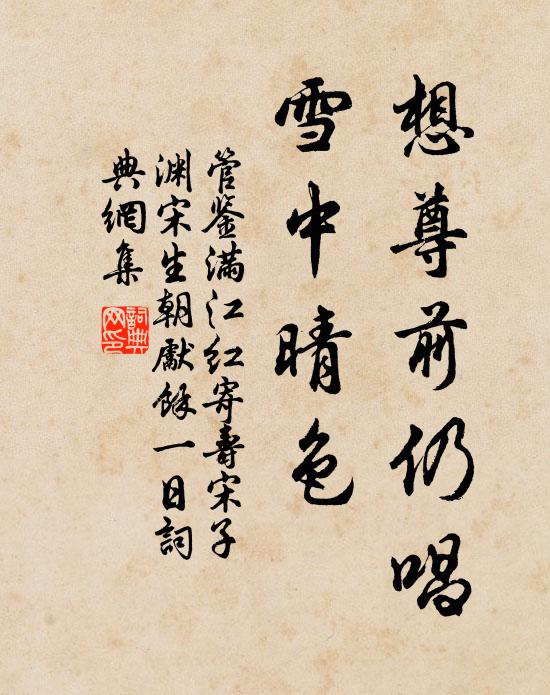 想尊前仍唱
雪中晴色
管鉴满江红寄寿宋子
渊宋生朝献馀一日词
典網集
詞典網印